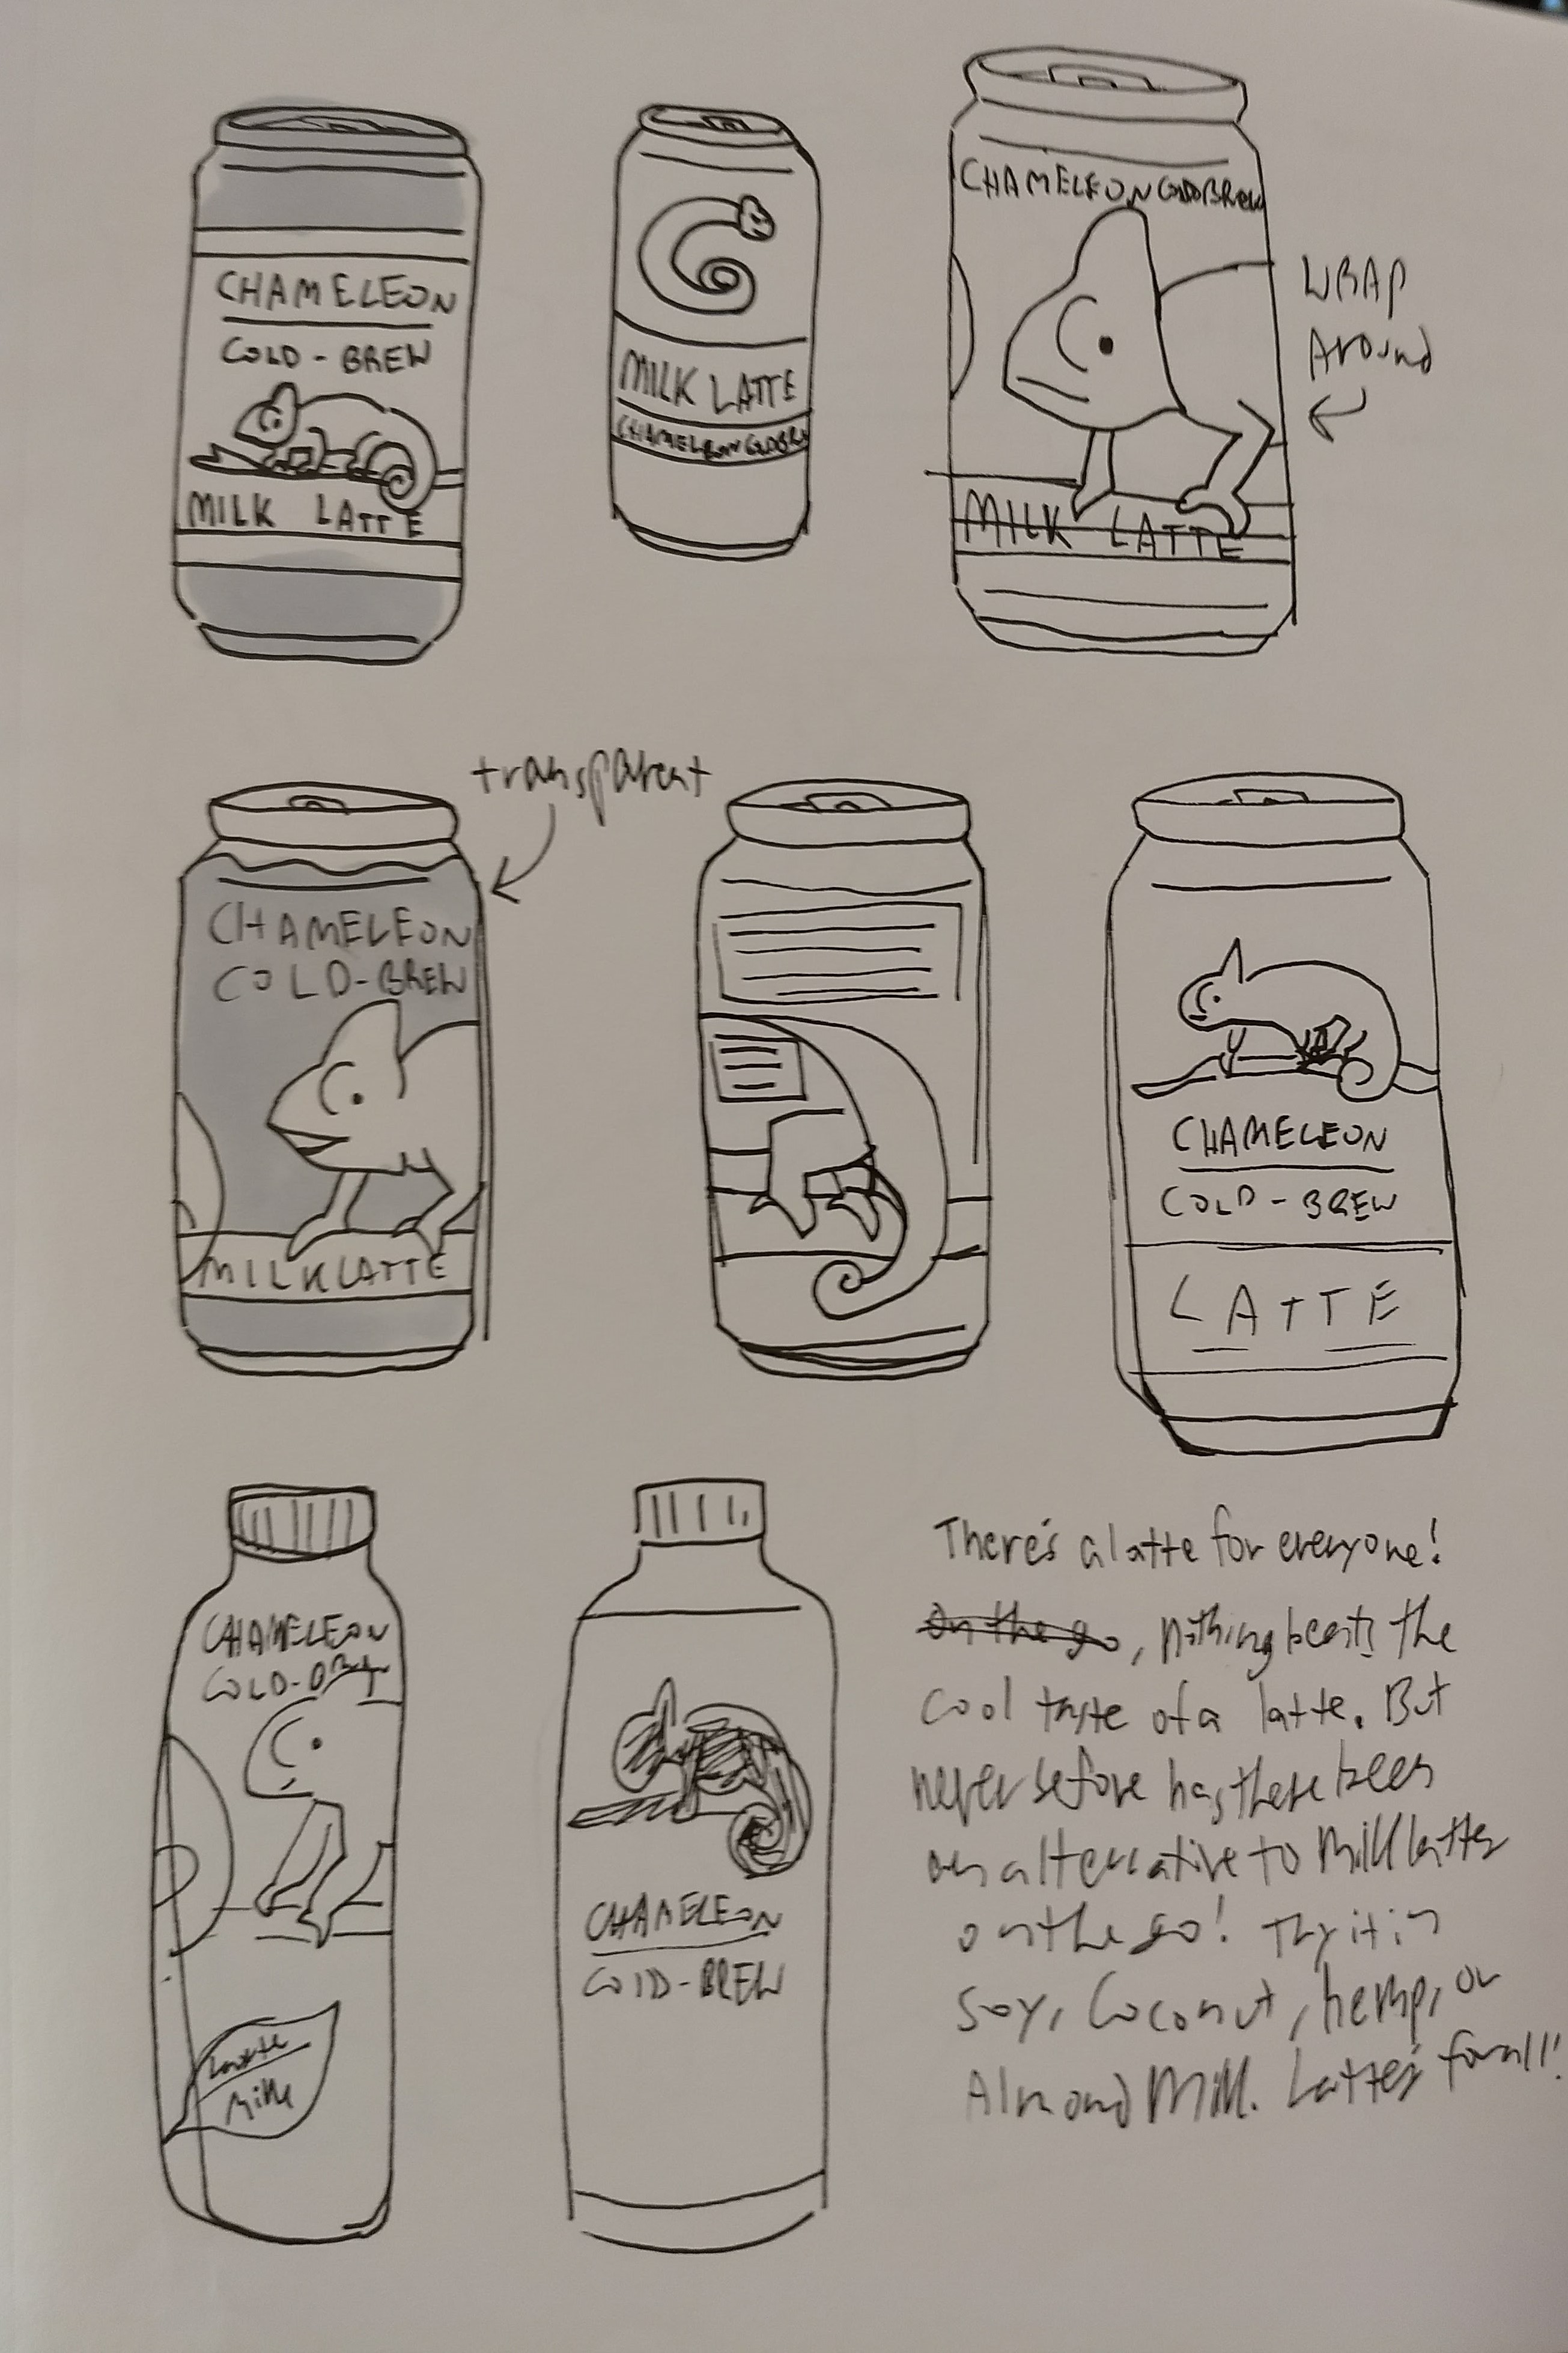 CHAMELEON
COLD-BREW
MILK LATTE
MILK LATTE
CHAMELEON COLDBRW
CHAMELEON COLDBREW
MILK LATTE
WRAP
Around
transparent
CHAMELEON
COLD-BREW
MILK LATTE
CHAMELEON
COLD-BREW
LATTE
CHAMELEON
COLD-BREW
Latte
Milk
CHAMELEON
COLD-BREW
There's a latte for everyone!
On the go, nothing beats the
cool taste of a latte. But
never before has there been
an alternative to Milk lattes
on the go! Try it in
Soy, Coconut, hemp, or
Almond Milk. Latte's for all!!